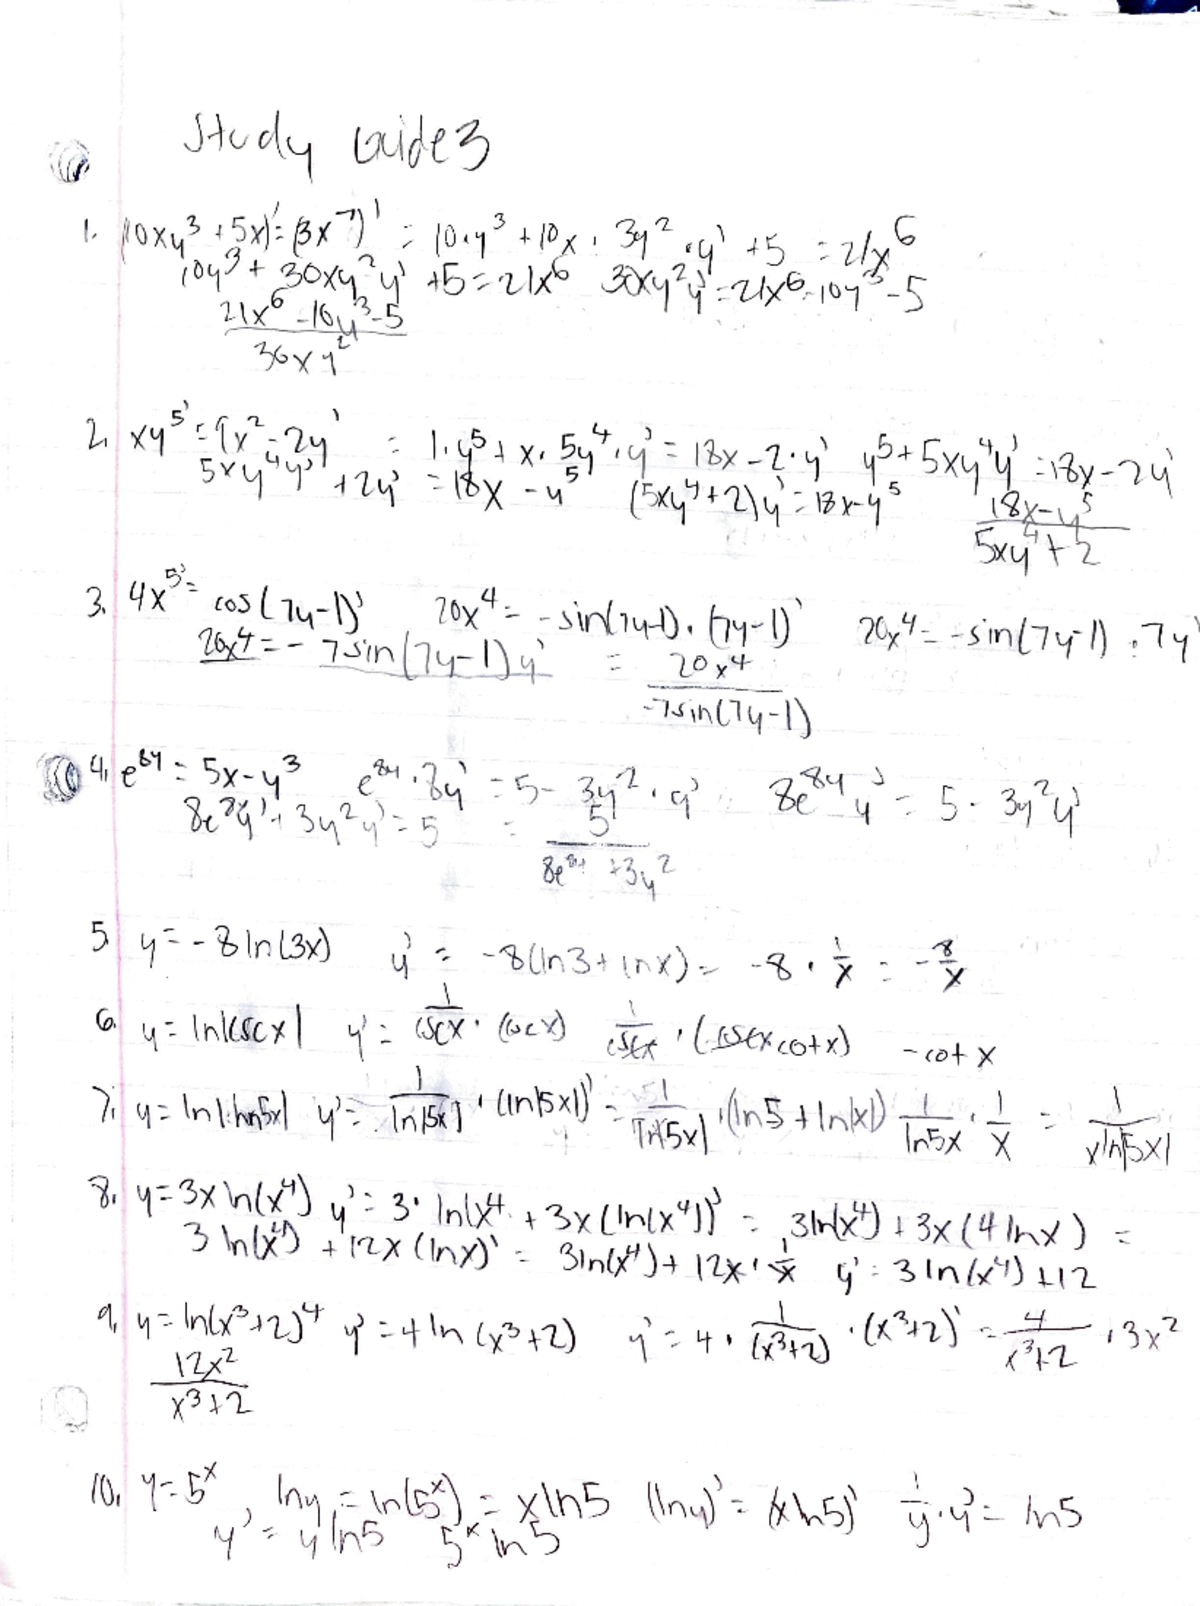 Study Guide 3
1. (10xy³ + 5x)' = (3x⁷)' = 10·y³ + 10x · 3y² · y' + 5 = 21x⁶
10y³ + 30xy²y' + 5 = 21x⁶ 30xy²y' = 21x⁶ - 10y³ - 5
21x⁶ - 10y³ - 5
30xy²
2. xy⁵' = 9x² - 2y' = 1·y⁵ + x · 5y⁴ · y' = 18x - 2·y' y⁵ + 5xy⁴y' = 18x - 2y'
5xy⁴y' + 2y' = 18x - y⁵ (5xy⁴ + 2)y' = 18x - y⁵ 18x - y⁵
5xy⁴ + 2
3. 4x⁵' = cos(7y-1)' 20x⁴ = -sin(7y-1) · (7y-1)' 20x⁴ = -sin(7y-1) · 7y'
20x⁴ = -7sin(7y-1)y' = 20x⁴
-7sin(7y-1)
4. e⁸ʸ = 5x - y³ e⁸ʸ · 8y' = 5 - 3y² · y' 8e⁸ʸ y' = 5 - 3y²y'
8e⁸ʸy' + 3y²y' = 5 = 5
8e⁸ʸ + 3y²
5. y = -8 ln(3x) y' = -8(ln3 + lnx) = -8 · 1/x = -8/x
6. y = ln|cscx| y' = 1/cscx · (cscx) 1/cscx · (-cscxcotx) -cotx
7. y = ln|ln5x| y' = 1/ln|5x| · (ln|5x|)' = 1/ln|5x| · (ln5 + ln|x|) 1/ln5x · 1/x = 1/xln|5x|
8. y = 3x ln(x⁴) y' = 3 · ln(x⁴ + 3x(ln(x⁴))' = 3ln(x⁴) + 3x(4lnx) =
3 ln(x⁴) + 12x(lnx)' = 3ln(x⁴) + 12x · 1/x y' = 3ln(x⁴) + 12
9. y = ln(x³+2)⁴ y' = 4 ln(x³+2) y' = 4 · 1/(x³+2) · (x³+2)' = 4/x³+2 · 3x²
12x²
x³+2
10. y = 5ˣ, lny = ln(5ˣ) = xln5 (lny)' = (xln5)' 1/y · y' = ln5
y' = yln5 5ˣ ln5